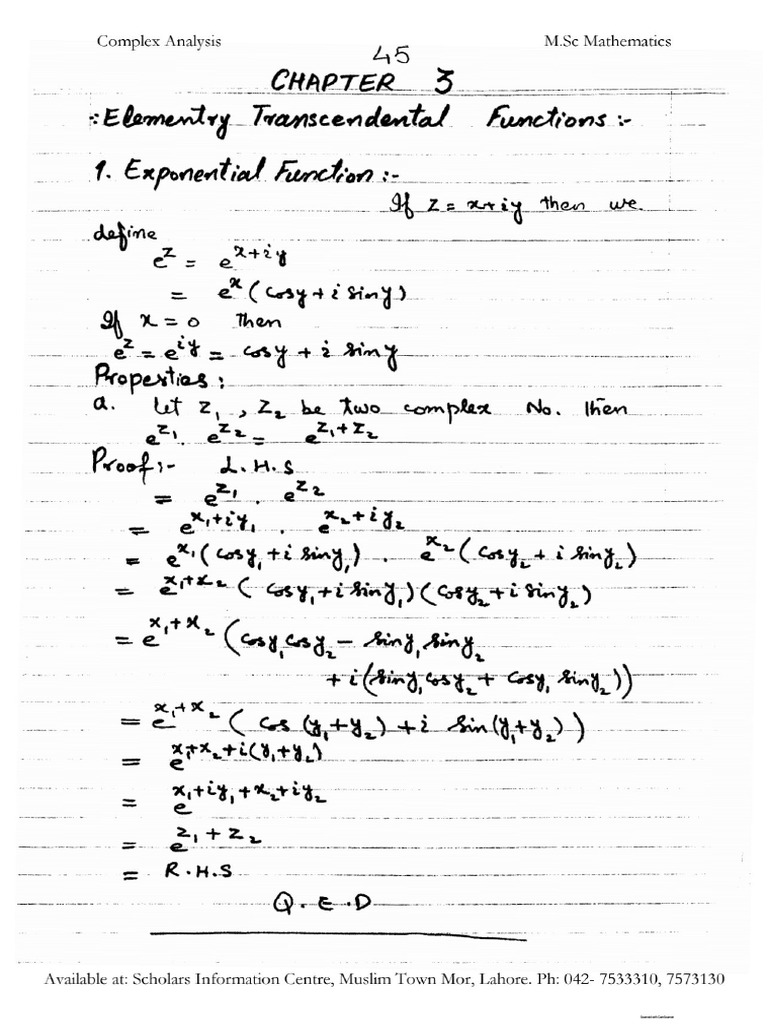 Complex Analysis M.Sc Mathematics
45
CHAPTER 3
:Elementry Transcendental Functions:-
1. Exponential Function:-
If z = x+iy then we
define
e^z = e^{x+iy}
= e^x (cosy + i siny)
If x = 0 then
e^z = e^{iy} = cosy + i siny
Properties:
a. let z₁, z₂ be two complex No. then
e^{z₁} . e^{z₂} = e^{z₁+z₂}
Proof:- L.H.S
= e^{z₁} . e^{z₂}
= e^{x₁+iy₁} . e^{x₂+iy₂}
= e^{x₁} (cosy₁ + i siny₁) . e^{x₂} (cosy₂ + i siny₂)
= e^{x₁+x₂} (cosy₁ + i siny₁)(cosy₂ + i siny₂)
= e^{x₁+x₂} (cosy₁cosy₂ - siny₁siny₂
+ i(siny₁cosy₂ + cosy₁ siny₂))
= e^{x₁+x₂} (cos(y₁+y₂) + i sin(y₁+y₂))
= e^{x₁+x₂+i(y₁+y₂)}
= e^{x₁+iy₁+x₂+iy₂}
= e^{z₁+z₂}
= R.H.S
Q.E.D
Available at: Scholars Information Centre, Muslim Town Mor, Lahore. Ph: 042- 7533310, 7573130
Scanned with CamScanner